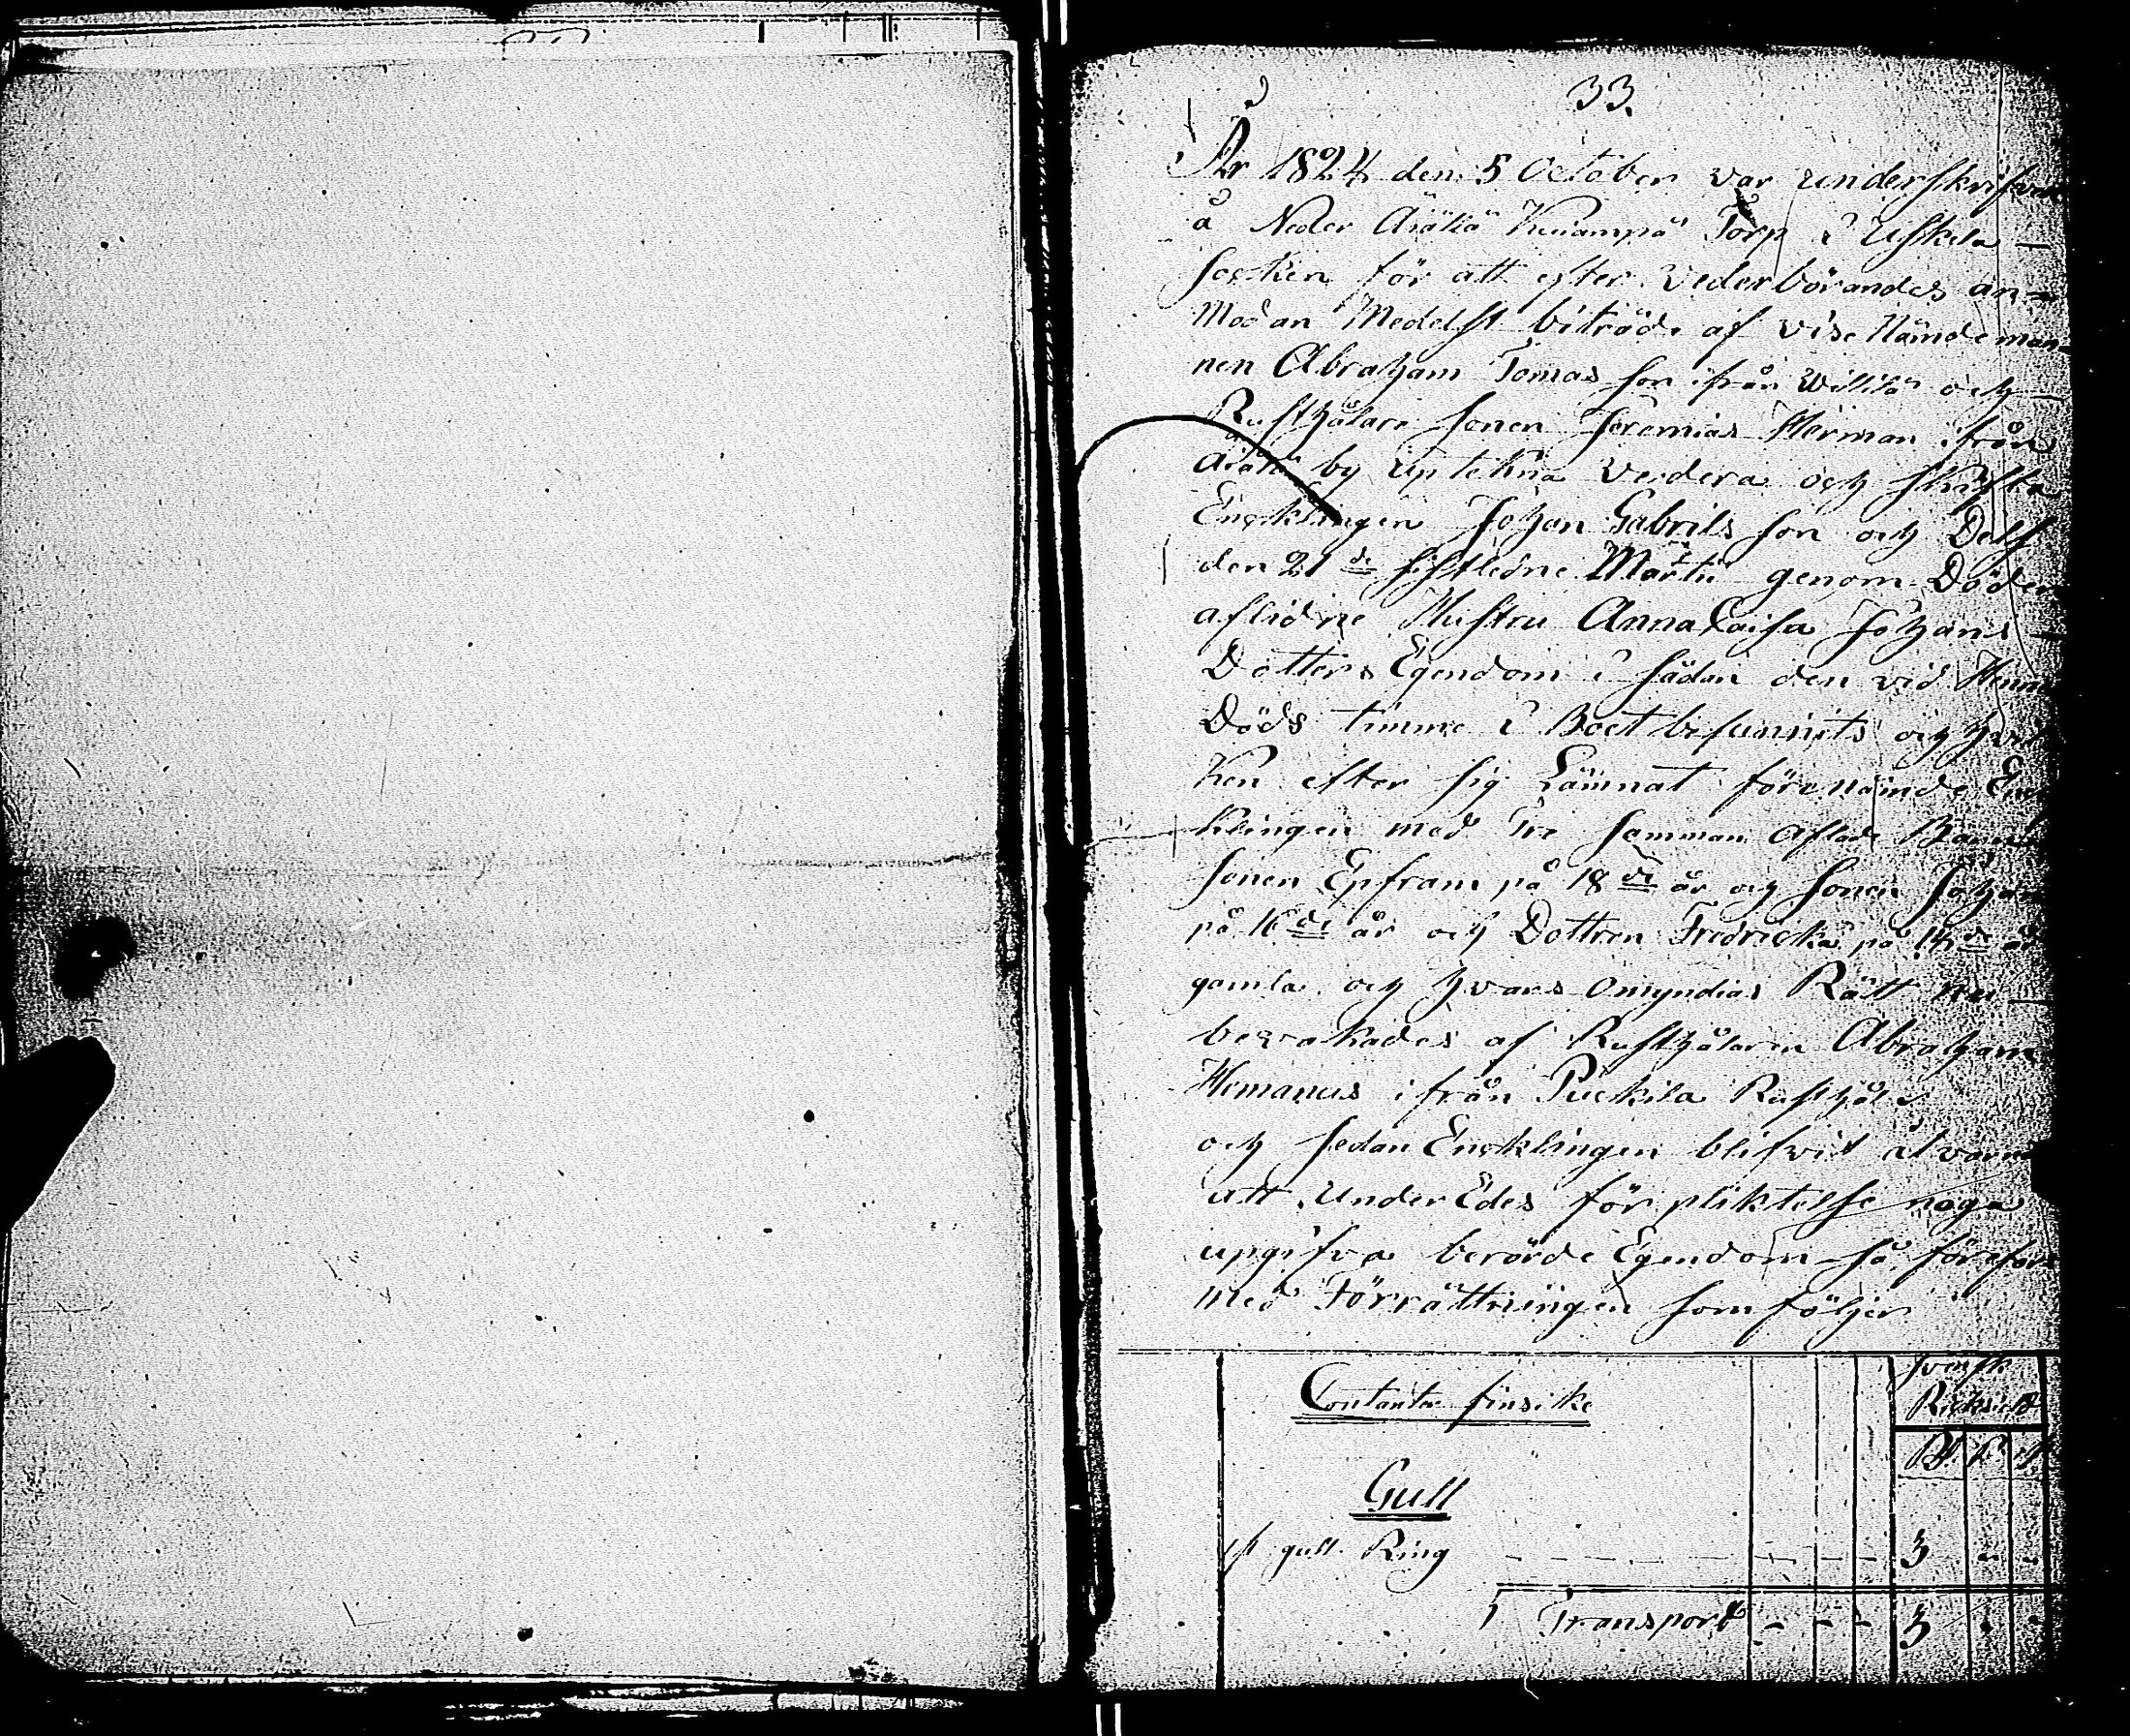 33.
År 1824 den 5 October var underskrifven
å Neder Äiälä Kuiampä Torp i Uskela
socken för att efter vederbörandes an-
modan Medelst biträde af vise Nämdeman-
nen Abraham Tomas son ifrån Willilä och
Rusthålare sonen Jeremias Herman ifrån
Äiälä by uptekna verdera och skifta
Encklingen Johan Gabrils son och Dess
den 21 de sistledne Martii genom Döden
aflidne Hustru Anna Caisa Johans
Dotters Egendom i sådan den vid Hennes
Döds timme i Boet befunnits och hvil
ken efter sig Lämnat förenämde Enc
klingen med Tre samman aflade Barn
sonen Epfram på 18 de år och sonen Johan
på 16 de år och Dottren Fredricka på 14 de år
gamla och hvars omyndias Rätt nu
bevakades af Rusthålaren Abraham
Hemanus ifrån Puckila Rusthåll
och sedan Encklingen blifvit åtvarnad
att under Edes förpliktelse noga
upgifva berörde Egendom så företogs
med Förrättningen som följer
Contanter finsike
Svensk
Ricksgld
Gull
1 st gull Ring - - - - - - - 3 " "
Transport - - - 3 " "